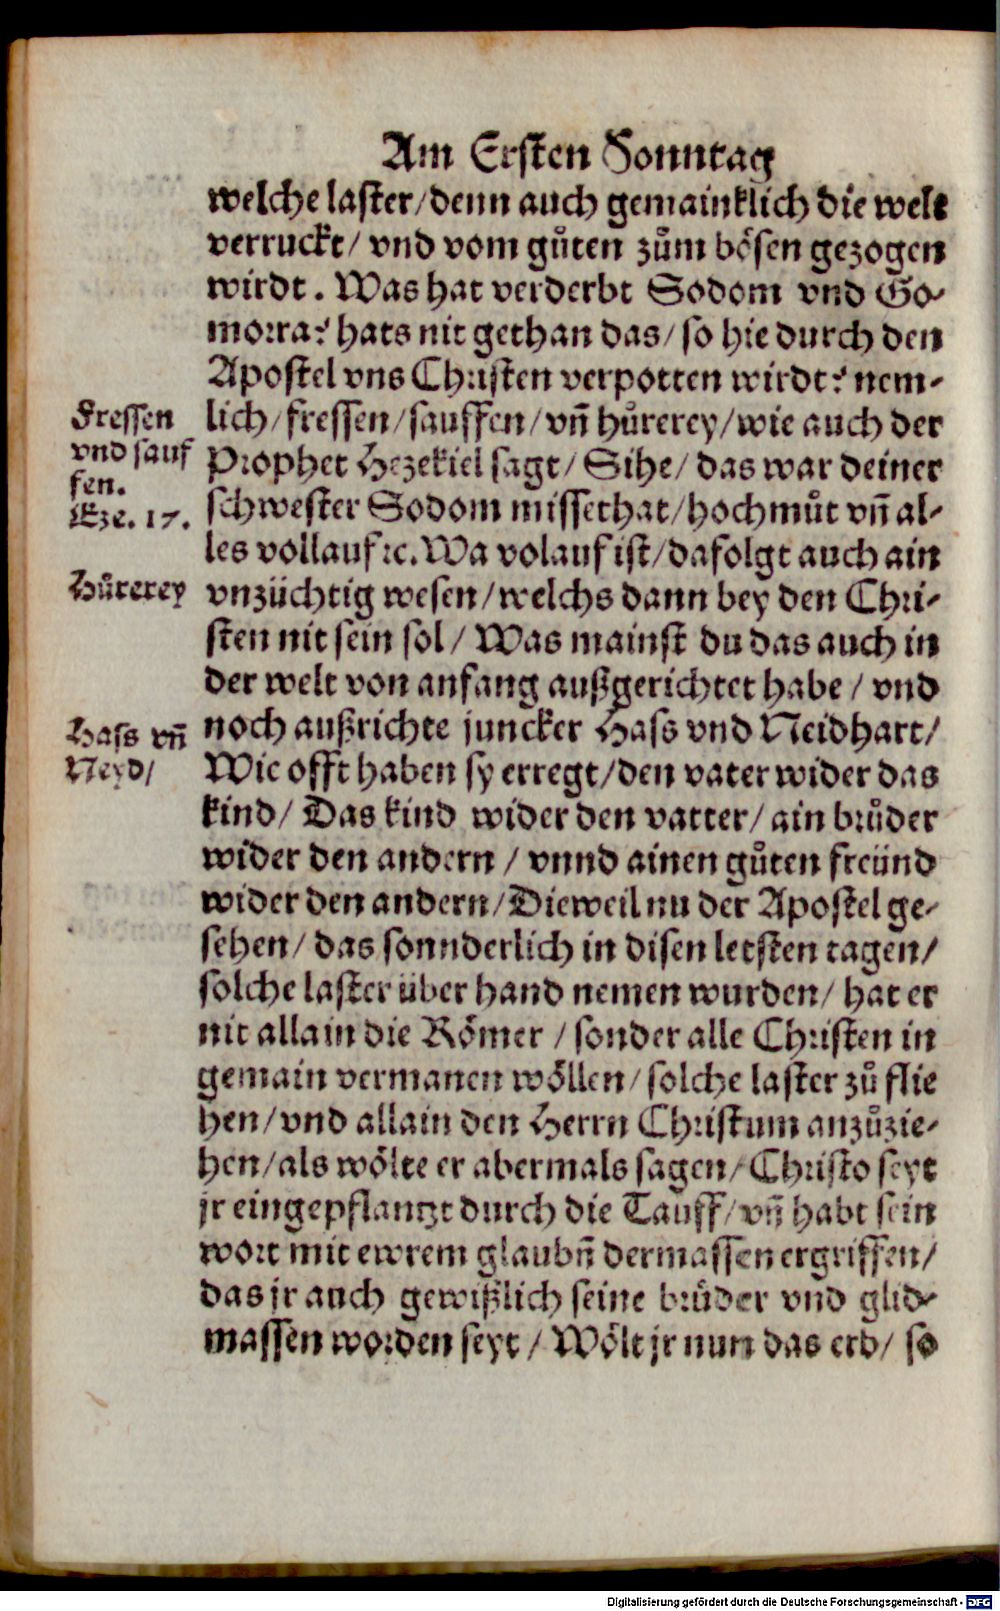 Am Ersten Sonntag
welche laster/denn auch gemainklich die welt
verruckt/ vnd vom gůten zům bösen gezogen
wirdt. Was hat verderbt Sodom vnd Go-
morra? hats nit gethan das/ so hie durch den
Apostel vns Christen verpotten wirdt? nem-
Fressen
vnd sauf
fen.
Eze. 17.
lich/fressen/sauffen/vñ hůrerey/wie auch der
Prophet Hezekiel sagt/ Sihe/ das war deiner
schwester Sodom missethat/hochmůt vñ al-
les vollauf ꝛc. Wa volauf ist/dafolgt auch ain
Hůrerey
vnzüchtig wesen/welchs dann bey den Chri-
sten nit sein sol/ Was mainst du das auch in
der welt von anfang außgerichtet habe/ vnd
Hass vñ
Neyd/
noch außrichte juncker Hass vnd Neidhart/
Wie offt haben sy erregt/den vater wider das
kind/ Das kind wider den vatter/ ain brůder
wider den andern/ vnnd ainen gůten freünd
wider den andern/Dieweil nu der Apostel ge-
sehen/ das sonnderlich in disen letsten tagen/
solche laster über hand nemen wurden/ hat er
nit allain die Römer/sonder alle Christen in
gemain vermanen wöllen/solche laster zů flie
hen/vnd allain den Herrn Christum anzůzie-
hen/als wölte er abermals sagen/Christo seyt
jr eingepflantzt durch die Tauff/vñ habt sein
wort mit ewrem glaubñ dermassen ergriffen/
das jr auch gewißlich seine brůder vnd glid-
massen worden seyt/ Wölt jr nun das erb/ so
Digitalisierung gefördert durch die Deutsche Forschungsgemeinschaft - DFG